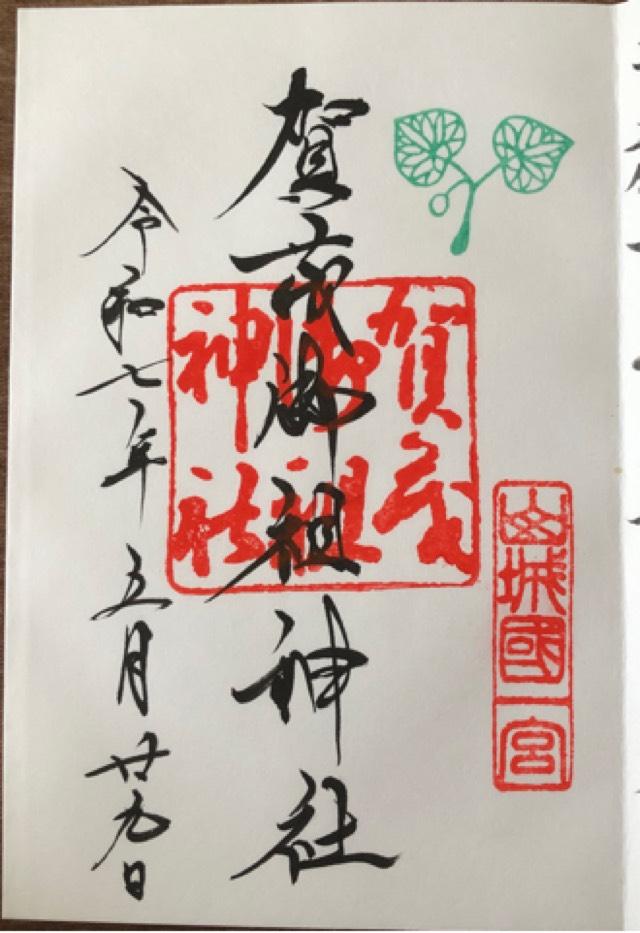 山城國一宮
賀茂御祖神社
賀茂
御祖
神社
令和七年五月廿九日